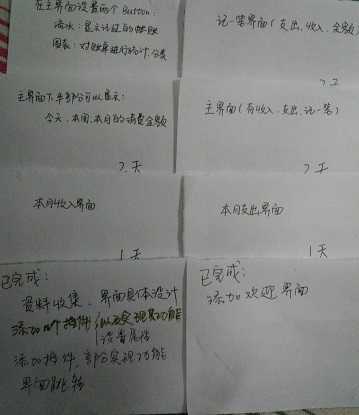 在主界面设着两个Button:
流水:显示记录的账数
图表:对账单进行统计.分类
记一笔界面(支出、收入、金额)
主界面下半部分可以显示:
今天、本周、本月的消费金额
2天
主界面(有收入、支出、记一笔)
2天
本月收入界面
1天
本月支出界面
1天
已完成:
资料收集、界面具体设计
添加
设置属性
添加控件、部分实现功能
界面跳转
已完成:
添加欢迎界面